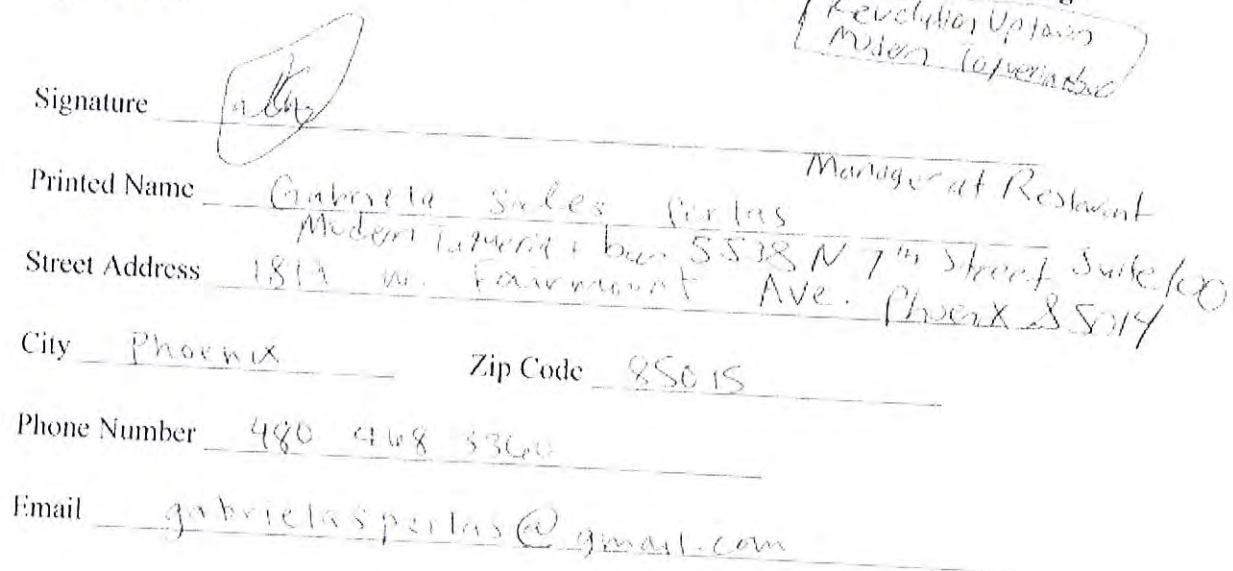 Uptown
Modern
Signature
Manager at Restaurant
Printed Name Gabriela Sales Perlas
Modern Taqueria + bar 5538 N 7th Street Suite 100
Street Address W. Fairmount Ave. Phoenix 85014
City Phoenix Zip Code 85015
Phone Number 480
Email gabrielasperlas@gmail.com